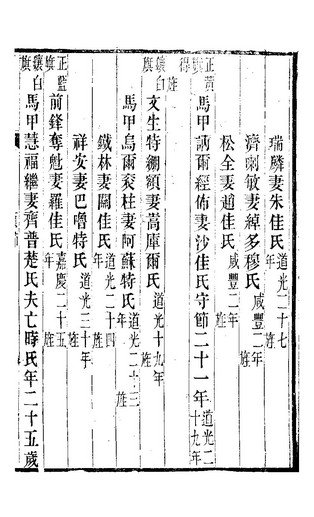 瑞麟妻朱佳氏道光二十七年旌
濟喇敏妻綽多穆氏咸豐二年旌
松全妻趙佳氏咸豐二年旌
正黃旗馬甲訥爾經佈妻沙佳氏守節二十一年道光二十九年
得旌
鑲白旗文生特綳額妻蒿庫爾氏道光十九年旌
馬甲烏爾袞柱妻阿蘇特氏道光二十三年旌
鐵林妻關佳氏道光二十四年旌
祥安妻巴嚕特氏道光三十年旌
正藍旗前鋒奪魁妻羅佳氏嘉慶二十五年旌
鑲白旗馬甲慧福繼妻齊普楚氏夫亡時氏年二十五歲